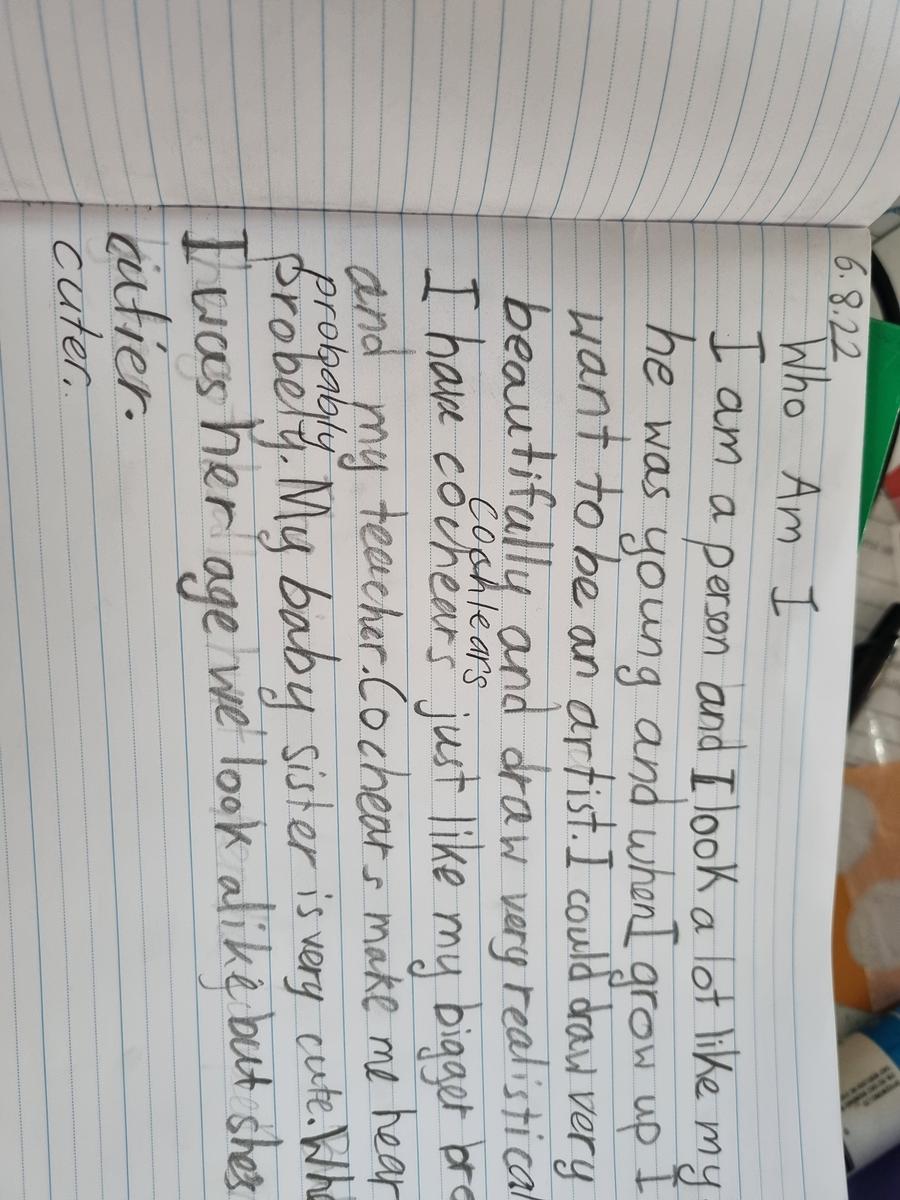 6.8.22
Who Am I
I am a person and I look a lot like my
he was young and when I grow up I
want to be an artist. I could draw very
beautifully and draw very realistical
coshlears
I have couhears just like my bigger bro
and my teacher. Cochears make me hear
probably
probely. My baby sister is very cute. Whe
I was her age we look alike but shes
cutier.
cuter.